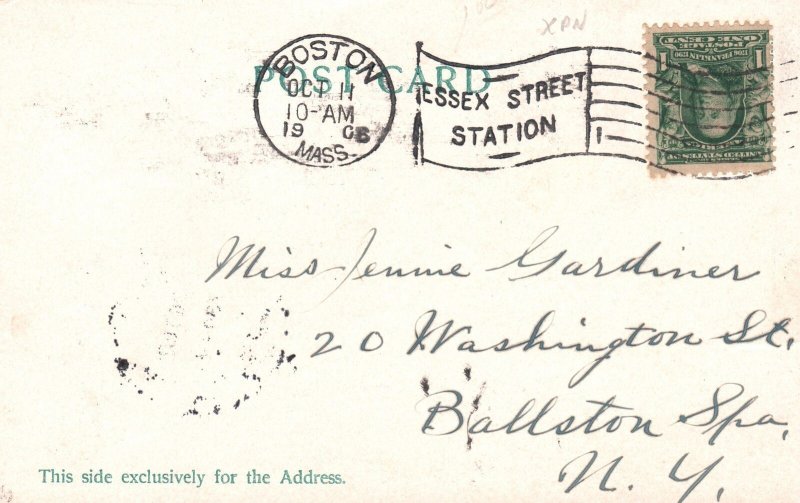 XPN
POST CARD
BOSTON
OCT 11
10-AM
19 06
MASS.
ESSEX STREET
STATION
1
ONE CENT
POSTAGE
1706 FRANKLIN 1790
1 1
Miss Jennie Gardiner
20 Washington St.
Ballston Spa,
N. Y.
This side exclusively for the Address.